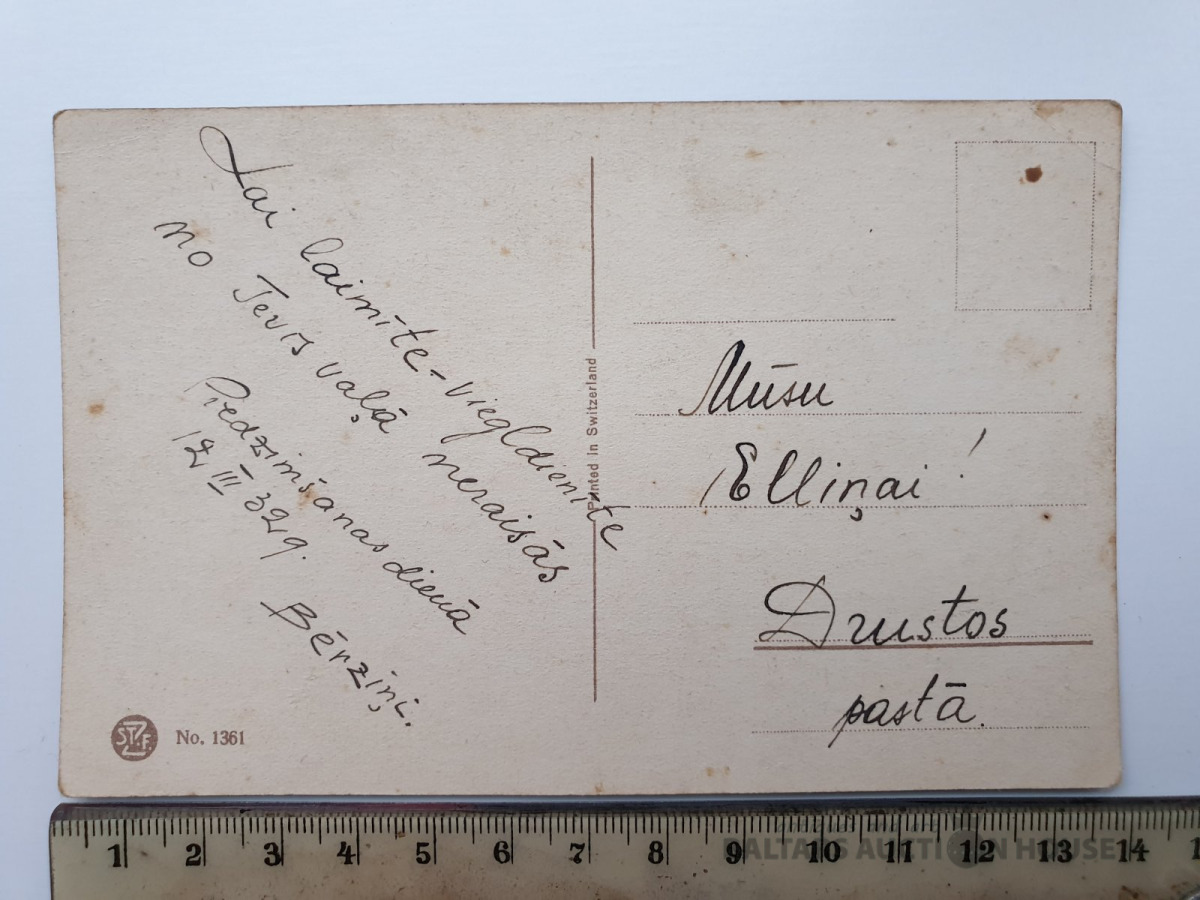 Lai laimīte-viegldienīte
no Tevis vaļā neraisās
Piedzimšanas dienā
12 III 32 g.
Bērziņi.
SZF
No. 1361
Printed in Switzerland
Mūsu
Elliņai!
Drustos
pastā.
1 2 3 4 5 6 7 8 9 10 11 12 13 14 1
BALTARS AUCTION HOUSE